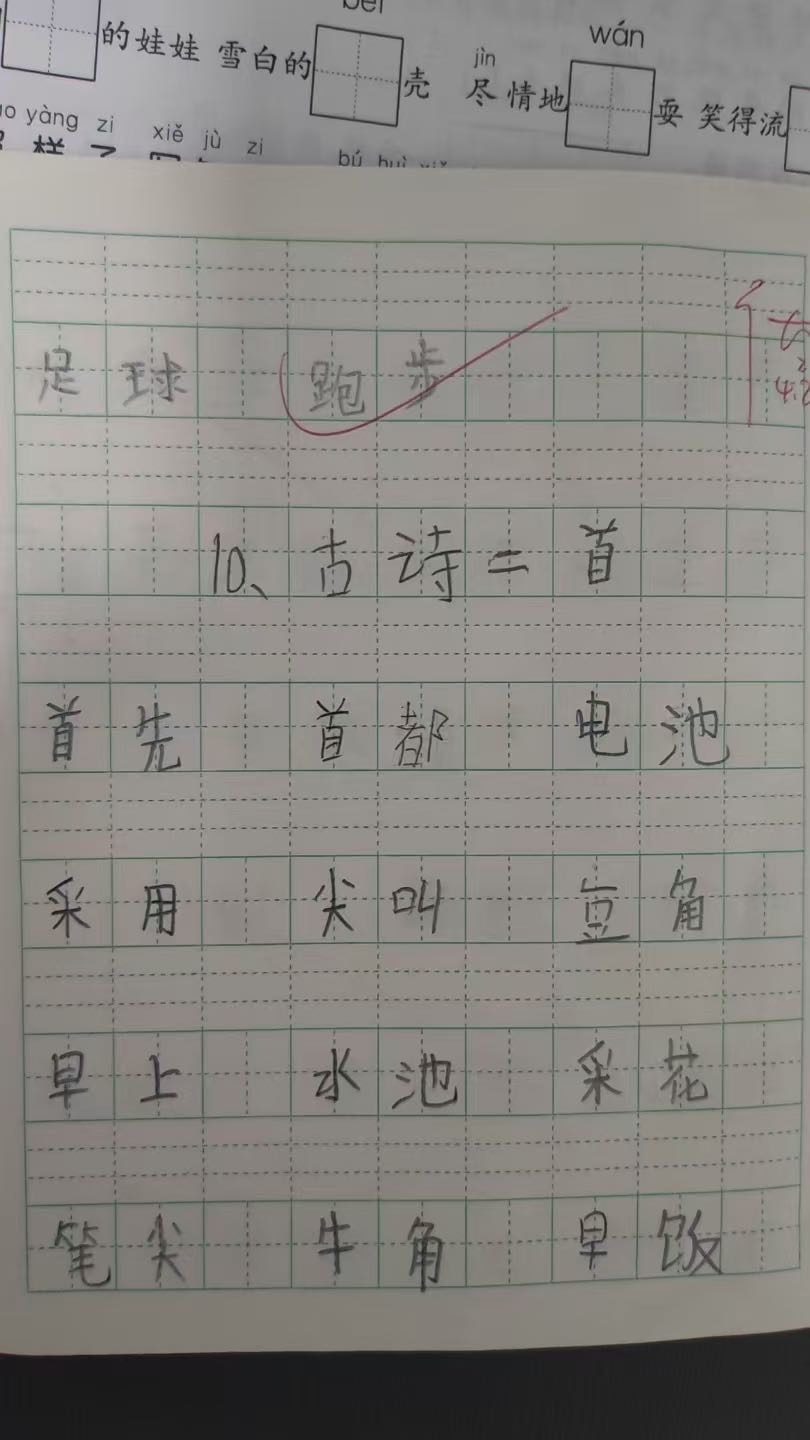 bèi wán
的娃娃 雪白的 壳 jìn 尽情地 耍 笑得流
yàng zi xiě jù zi bú huì
样子
足球 跑步
10、古诗二首
首先 首都 电池
采用 尖叫 豆角
早上 水池 采花
笔尖 牛角 早饭